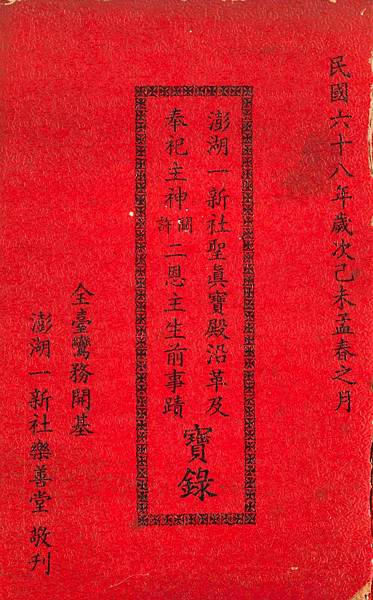 民國六十八年歲次己未孟春之月
澎湖一新社聖眞寶殿沿革及
奉祀主神關許二恩主生前事蹟
寶錄
全臺鸞務開基
澎湖一新社樂善堂敬刋